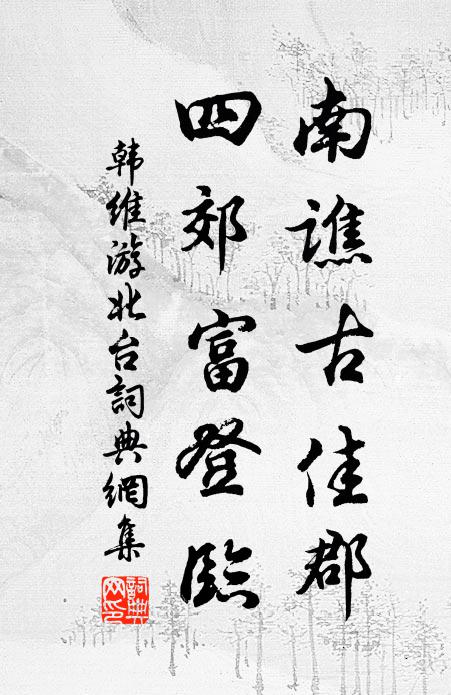 南譙古佳郡
四郊富登臨
韩维游北台詞典網集
詞典網印